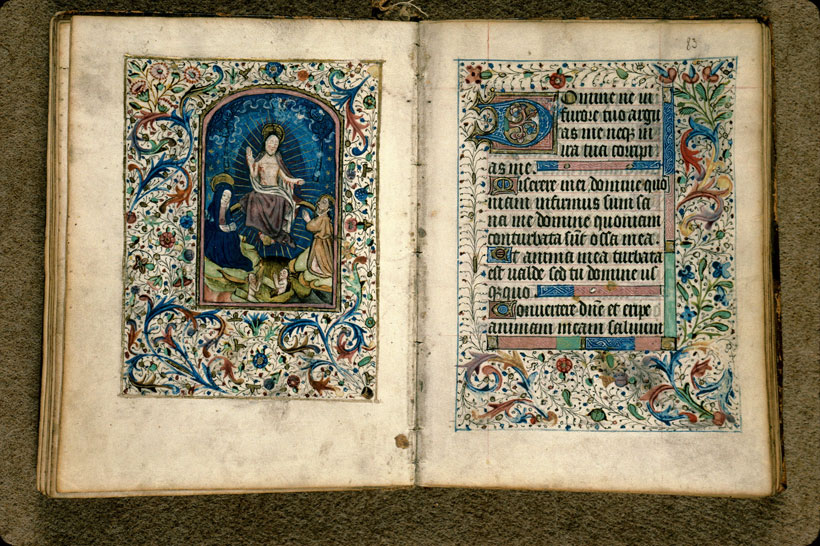 83
Domine ne in
furore tuo argu
as me neq in
ira tua corripi
as me.
Miserere mei domine quo
niam infirmus sum sa
na me domine quoniam
conturbata sūt ossa mea.
Et anima mea turbata
est ualde sed tu domine us
qquo
Conuertere dn̄e et eripe
animam meam saluum